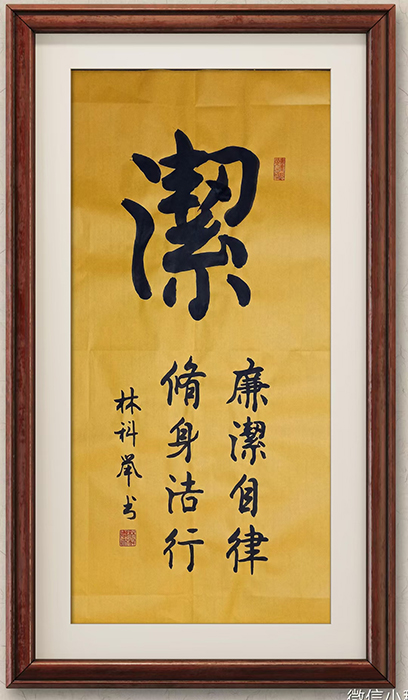 潔
廉潔自律
脩身洁行
林科举书
微信小